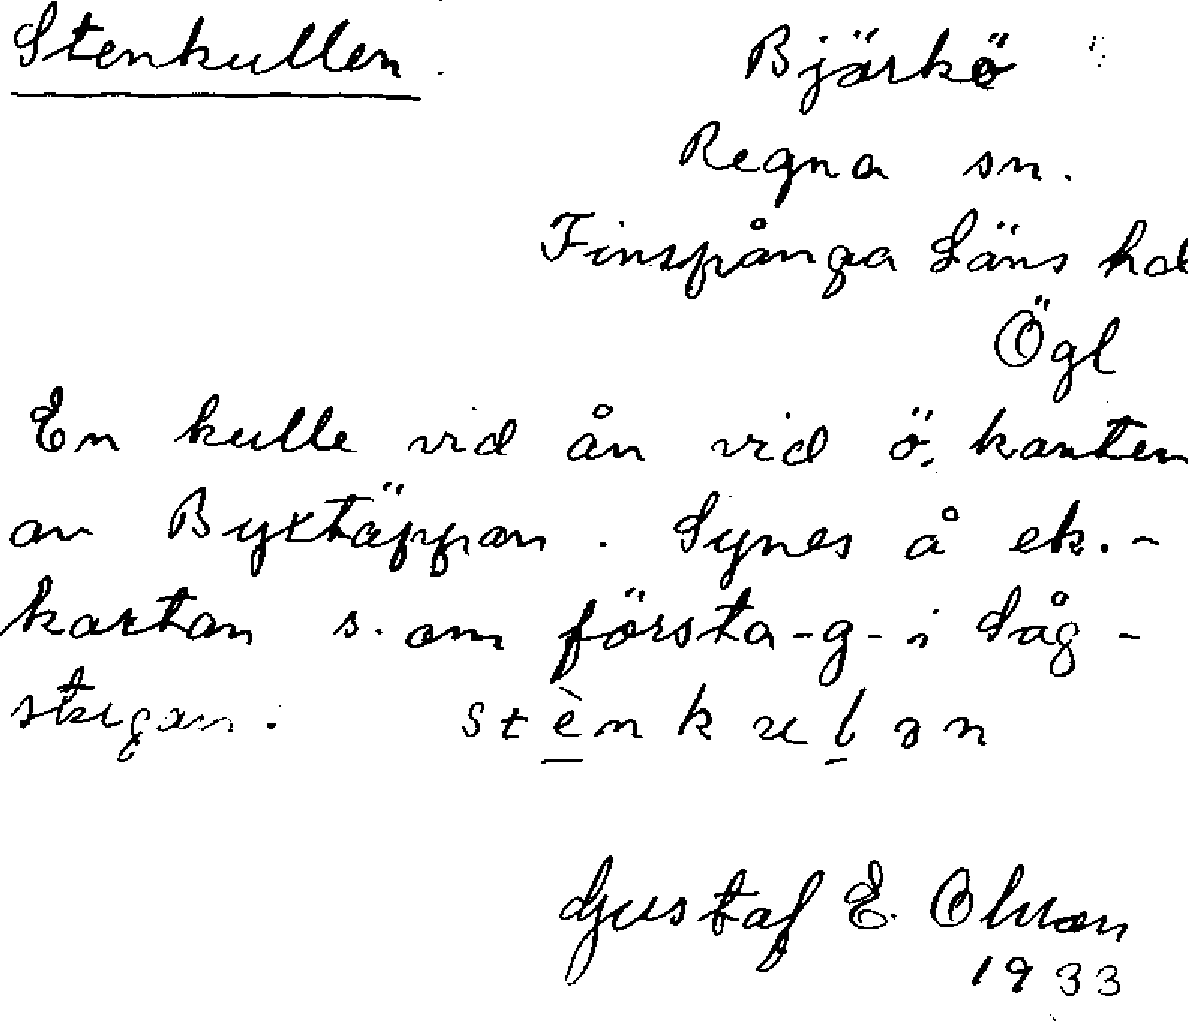 Stenkullen. Björkö
Regna sn.
Finspånga Läns hd
Ögl
En kulle vid ån vid ö. kanten
av Byxtäppan. Synes å ek.-
kartan s. om första -g- i Såg-
stugan. stènkulən
Gustaf E. Olsson
1933